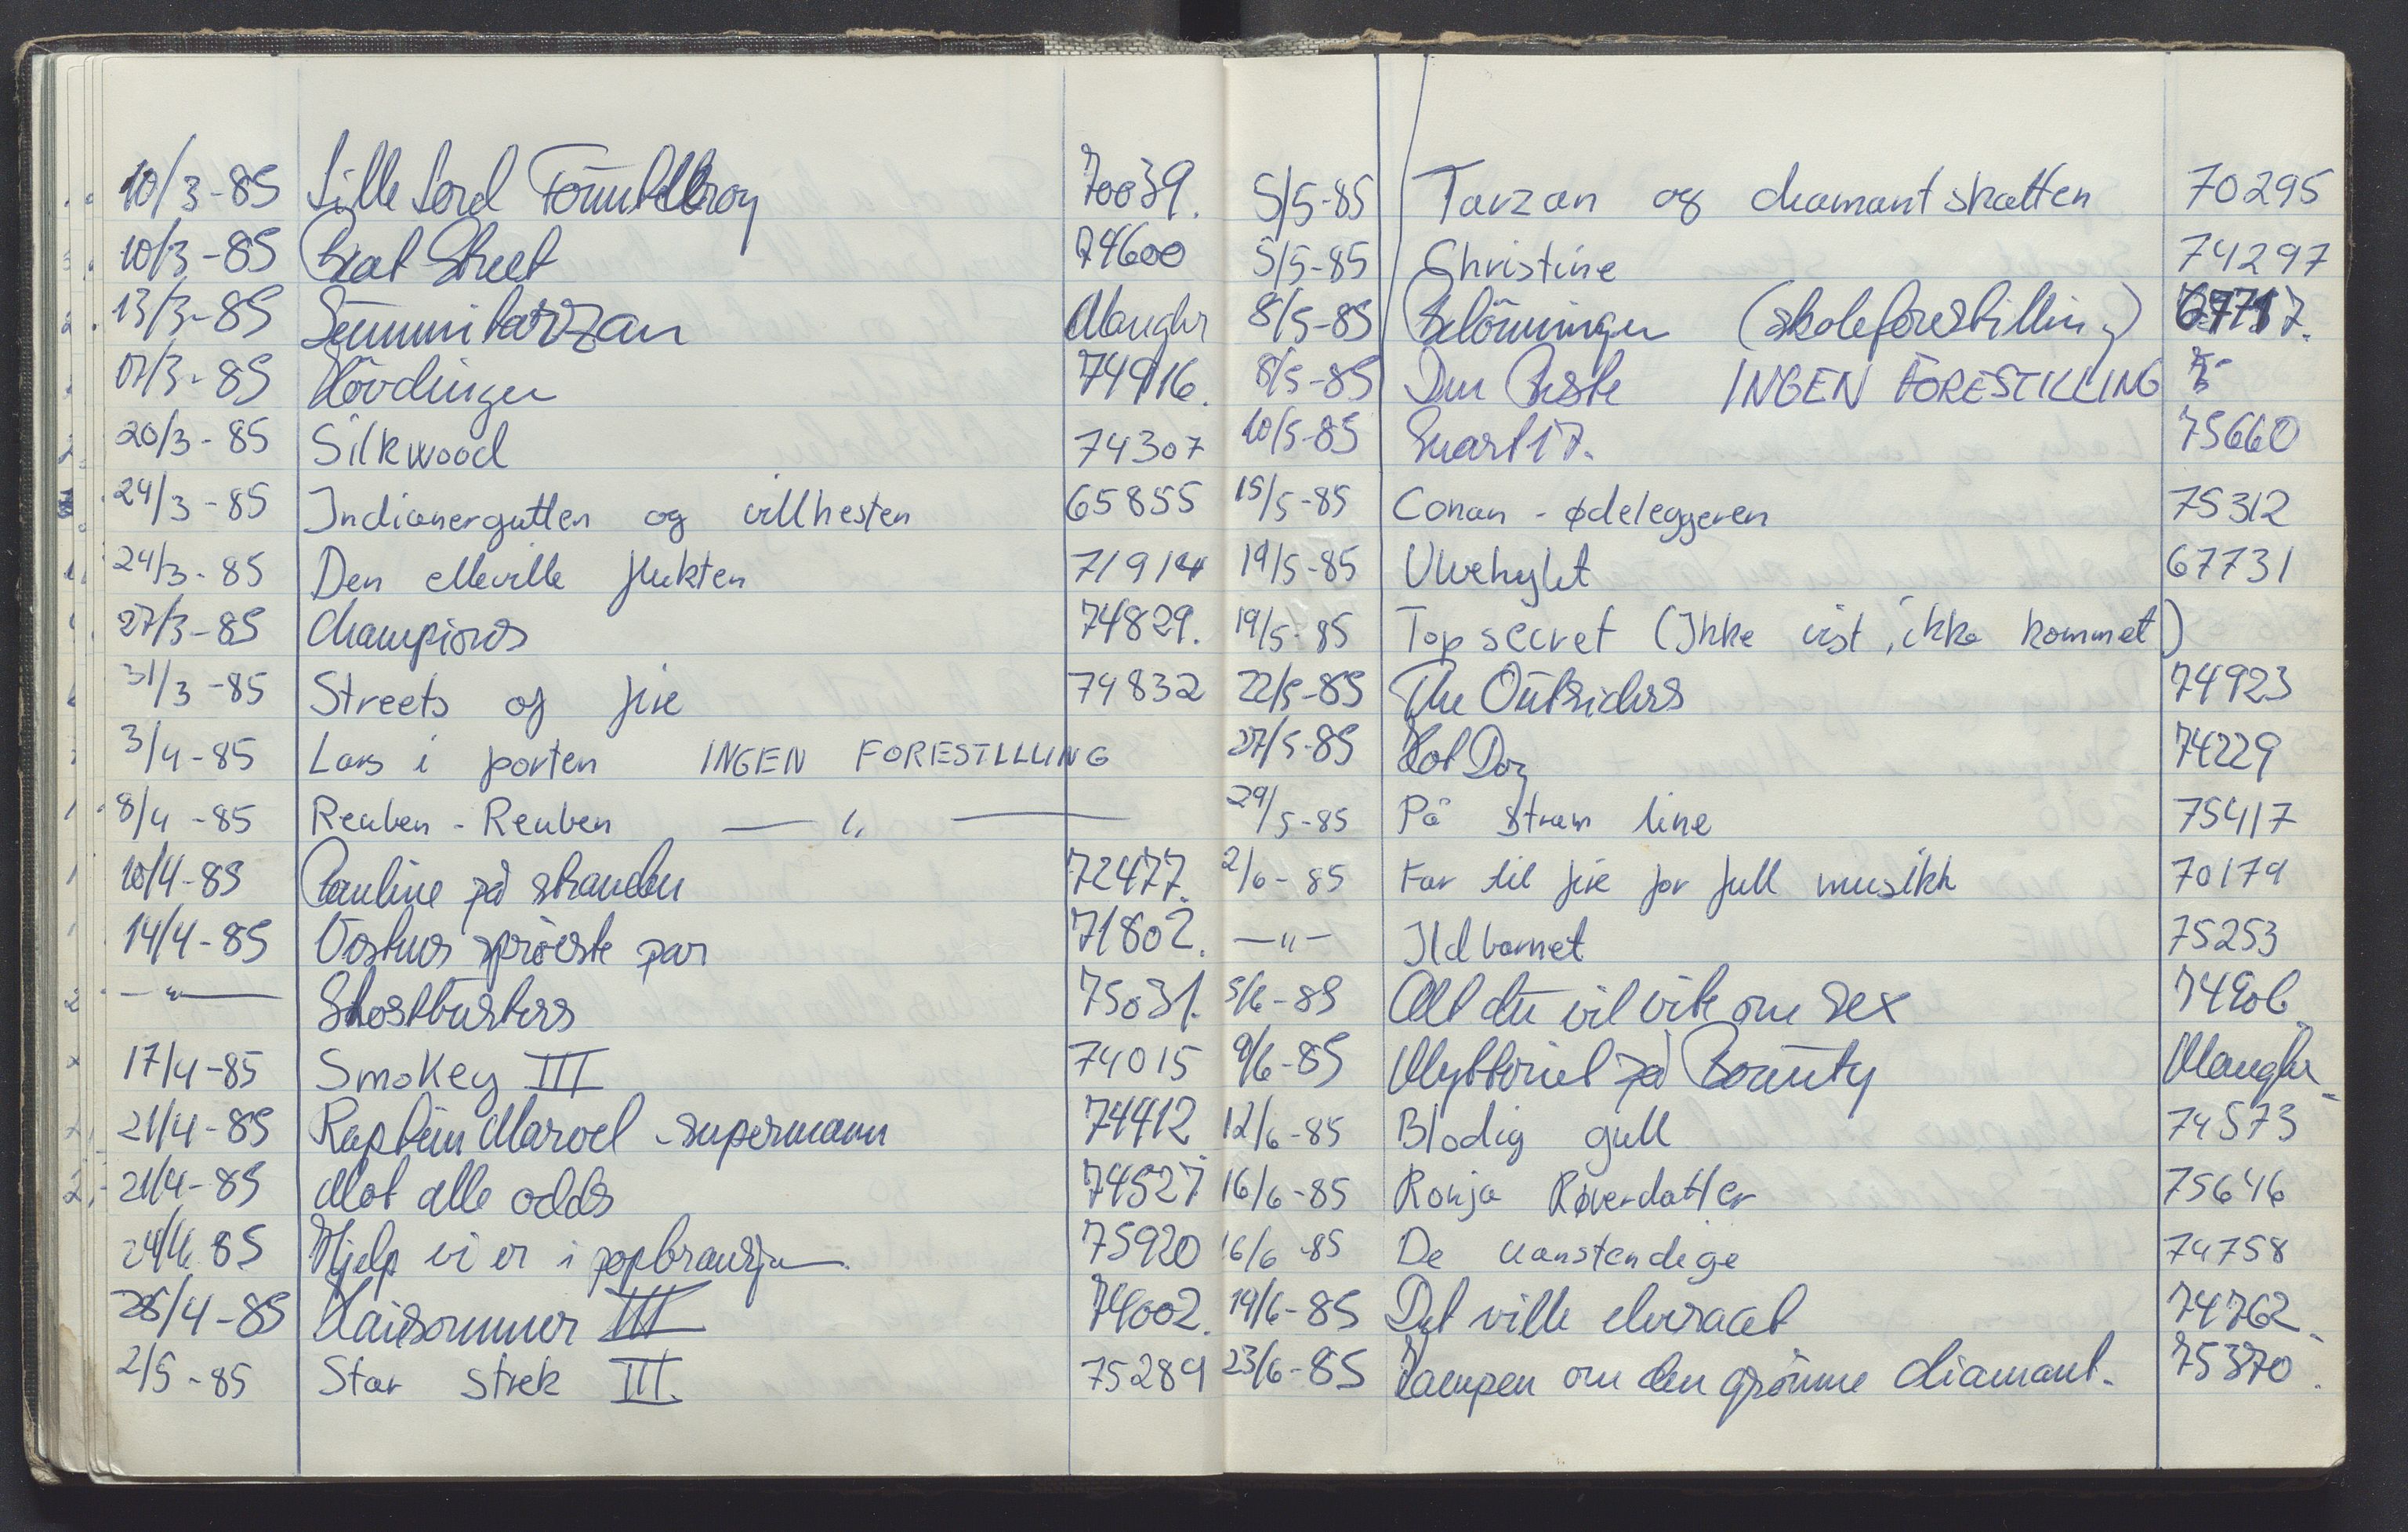 10/3-85 Lille Lord Fountelbroy 70039.
10/3-85 Beat Street 74600
13/3-85 Gummitarzan Manglr
17/3-85 Hövdingen 74916.
20/3-85 Silkwood 74307
24/3-85 Indianergutten og villhesten 65855
24/3-85 Den elleville flukten 71914
27/3-85 Champions 74829.
31/3-85 Streets of fire 74832
3/4-85 Lars i porten INGEN FORESTILLING
8/4-85 Reuben - Reuben — " —
10/4-85 Pauline på stranden 72477.
14/4-85 Vestens sprøeste par 71802.
— " — Ghostbusters 75031.
17/4-85 Smokey III 74015
21/4-85 Kaptein Marvel - supermann 74412
21/4-85 Mot alle odds 74527
24/4 85 Hjelp vi er i popbransjen 75920
28/4-85 Haisommer III 74002.
2/5-85 Star strek III. 75289
5/5-85 Tarzan og diamantskatten 70295
5/5-85 Christine 74297
8/5-85 Belönningen (skoleforestilling)
8/5-85 Den Beste INGEN FORESTILLING
10/5-85 Snart 17. 75660
15/5-85 Conan - ødeleggeren 75312
19/5-85 Ulvehylet 67731
19/5-85 Top secret (Ikke vist, ikke kommet)
22/5-85 The Outsiders 74923
27/5-85 Hot Dog 74229
29/5-85 På stram line 75417
2/6-85 Far til fire for full musikk 70179
— " — Ildbarnet 75253
5/6-85 Alt du vil vite om sex 74906
9/6-85 Mytteriet på Bounty Manglr
12/6-85 Blodig gull 74573
16/6-85 Ronja Røverdatter 75646
16/6-85 De uanstendige 74758
19/6-85 Det ville elveraat 74762.
23/6-85 Kampen om den grønne diamant. 75370.